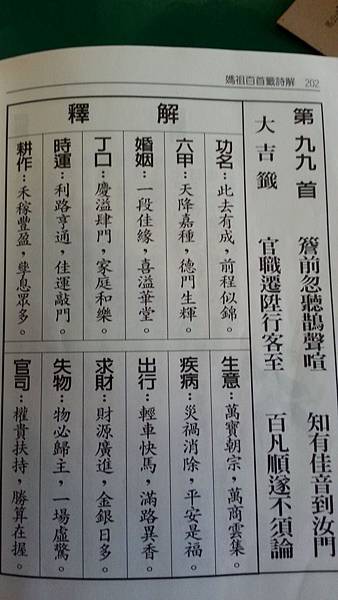 媽祖百首籤詩解 202
第九九首
大吉籤
簷前忽聽鵲聲喧 知有佳音到汝門
官職遷陞行客至 百凡順遂不須論
解釋
功名：此去有成，前程似錦。
六甲：天降嘉種，德門生輝。
婚姻：一段佳緣，喜溢華堂。
丁口：慶溢肆門，家庭和樂。
時運：利路亨通，佳運敲門。
耕作：禾稼豐盈，孳息眾多。
生意：萬寶朝宗，萬商雲集。
疾病：災禍消除，平安是福。
出行：輕車快馬，滿路異香。
求財：財源廣進，金銀日多。
失物：物必歸主，一場虛驚。
官司：權貴扶持，勝算在握。